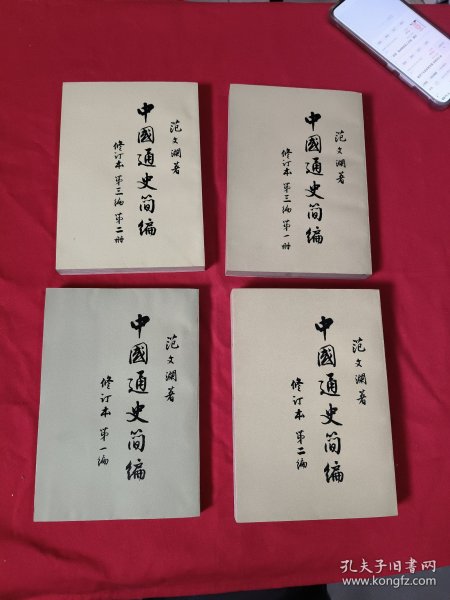 范文澜著
中國通史简编
修订本 第三编 第二册
范文澜著
中國通史简编
修订本 第三编 第一册
范文澜著
中國通史简编
修订本 第一编
范文澜著
中國通史简编
修订本 第二编
孔夫子旧书网
www.kongfz.com